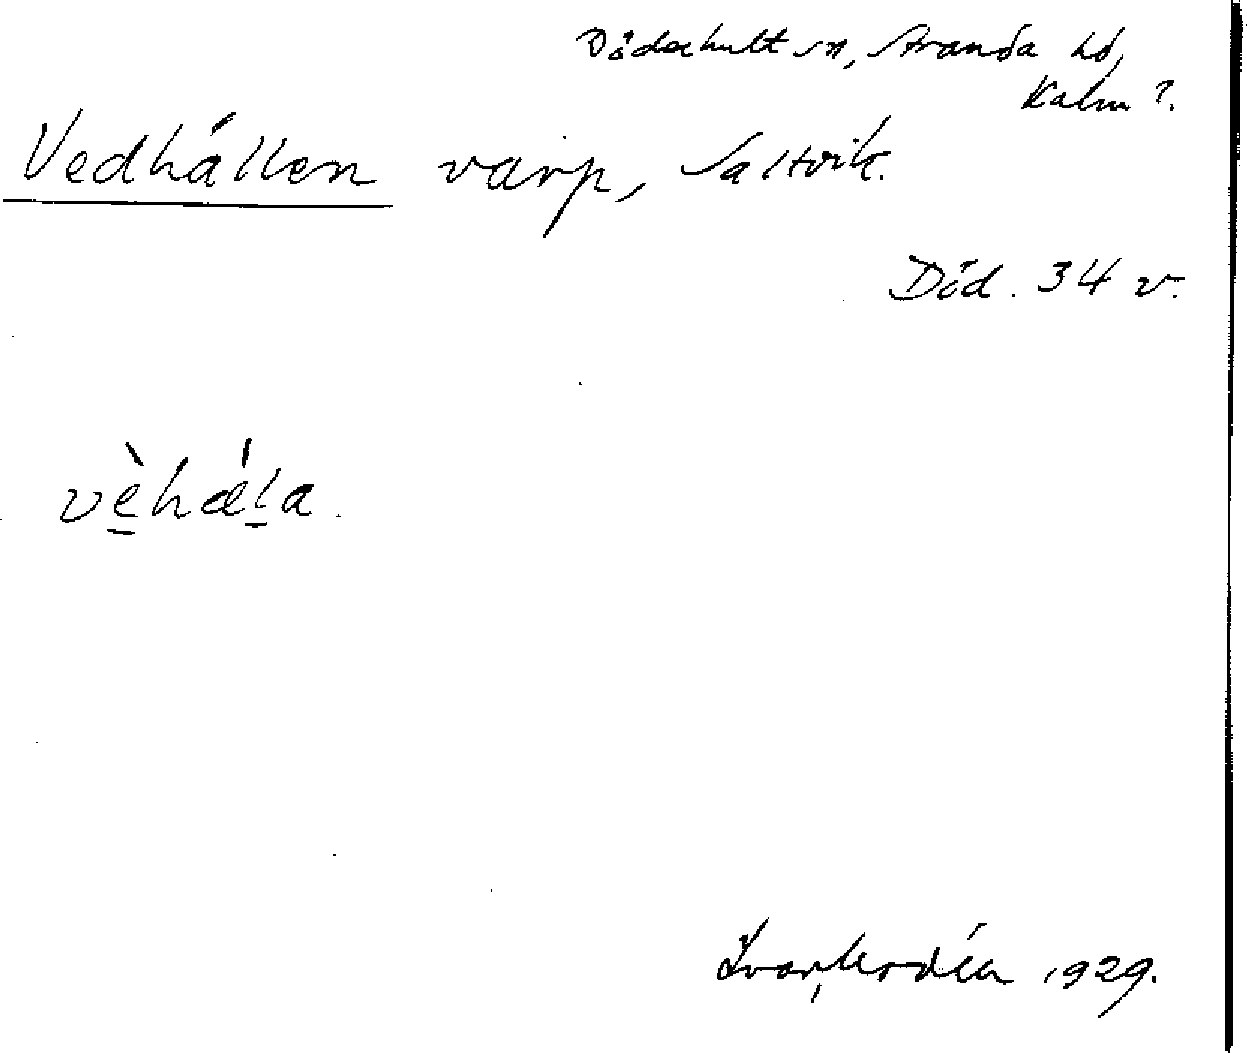 Döderhult sn, Stranda hd,
Kalm l.
Vedhällen varp, Saltvik.
Död. 34 v.
vèhæ̀la.
Ivar Modéer 1929.